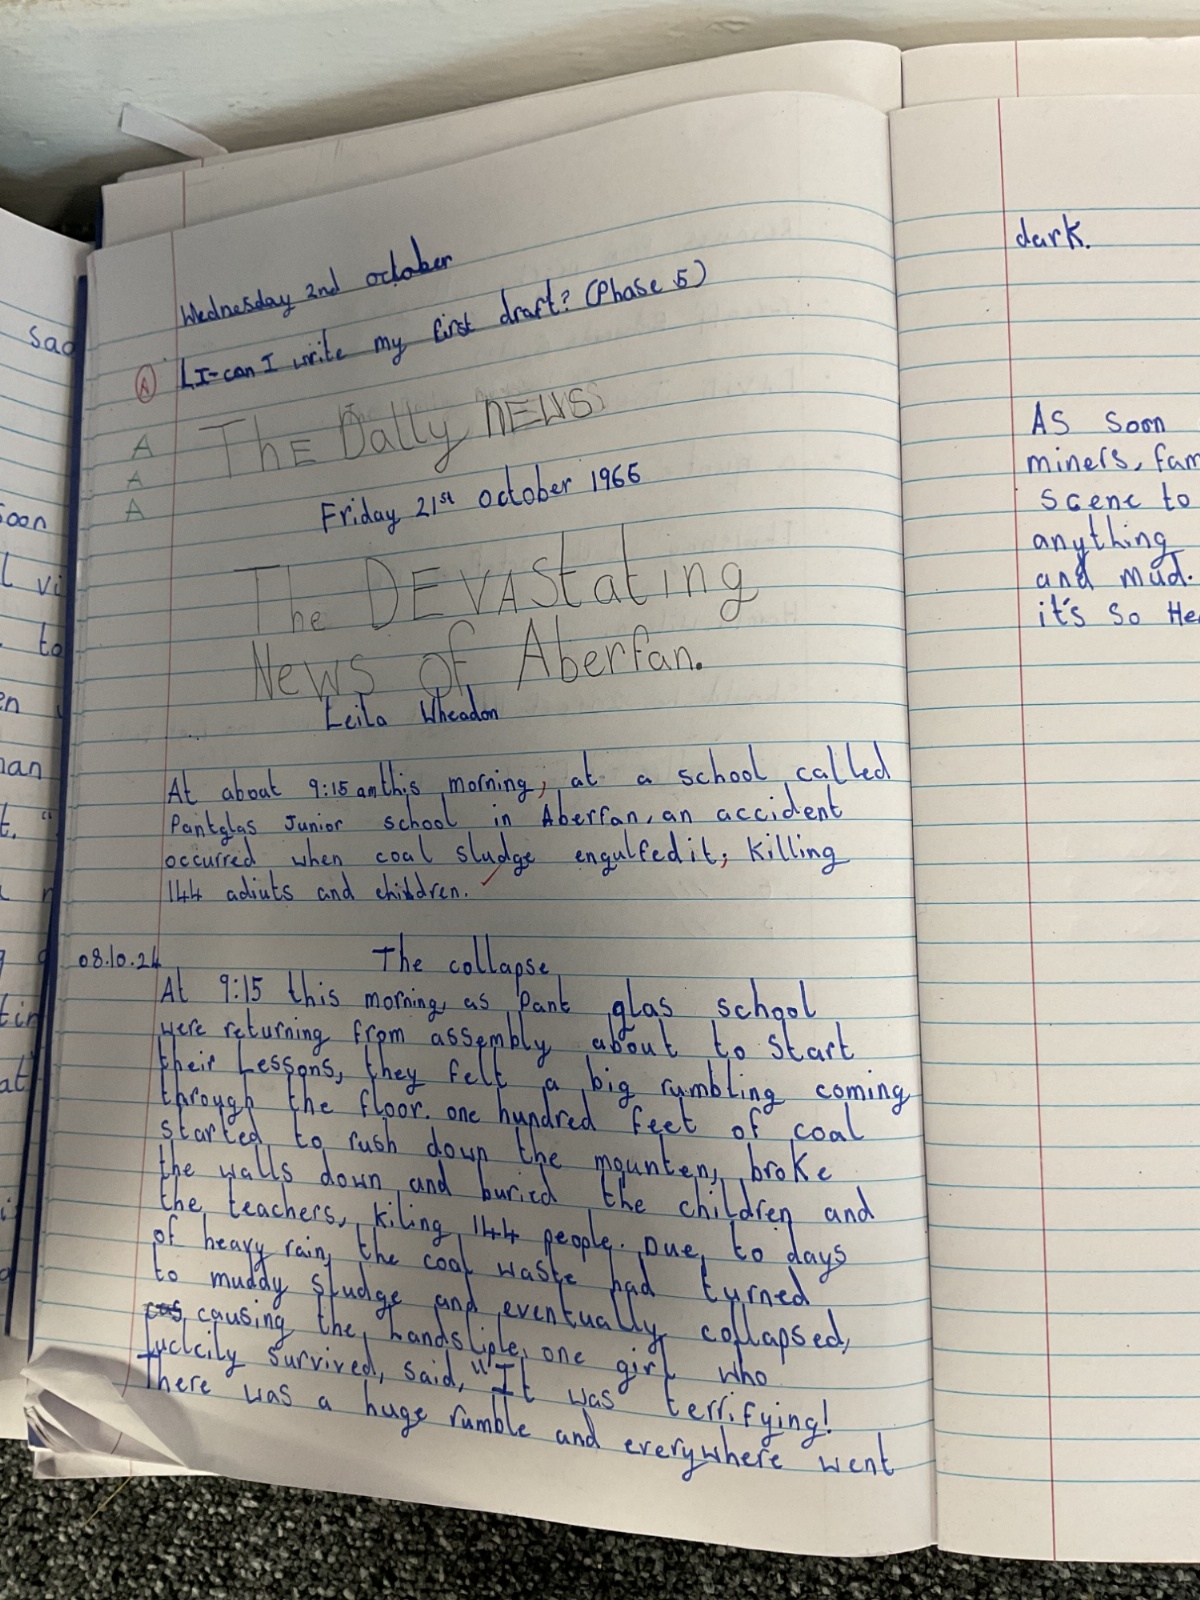 Wednesday 2nd october
LI-can I write my first draft? (Phase 5)
A
The Daily NEWS
A
A
A
Friday 21st october 1966
The DEVAStating
News of Aberfan.
Leila Wheadon
At about 9:15 am this morning, at a school called
Pantglas Junior school in Aberfan, an accident
occurred when coal sludge engulfed it; killing
144 adluts and children.
08.10.24
The collapse
At 9:15 this morning, as Pant glas school
were returning from assembly about to start
their Lessons, they felt a big rumbling coming
through the floor. one hundred feet of coal
started to rush down the mounten, broke
the walls down and buried the children and
the teachers, kiling 144 people. Due, to days
of heavy rain, the coal waste had turned
to muddy sludge and eventually collapsed,
causing the, landsliple. one girl who
lucicily survived, said, "It was terrifying!
There was a huge rumble and everywhere went
dark.
As soon
miners, fam
scene to
anything
and mud.
it's so He
sad
soon
l vi
to
en
nan
t. "
at